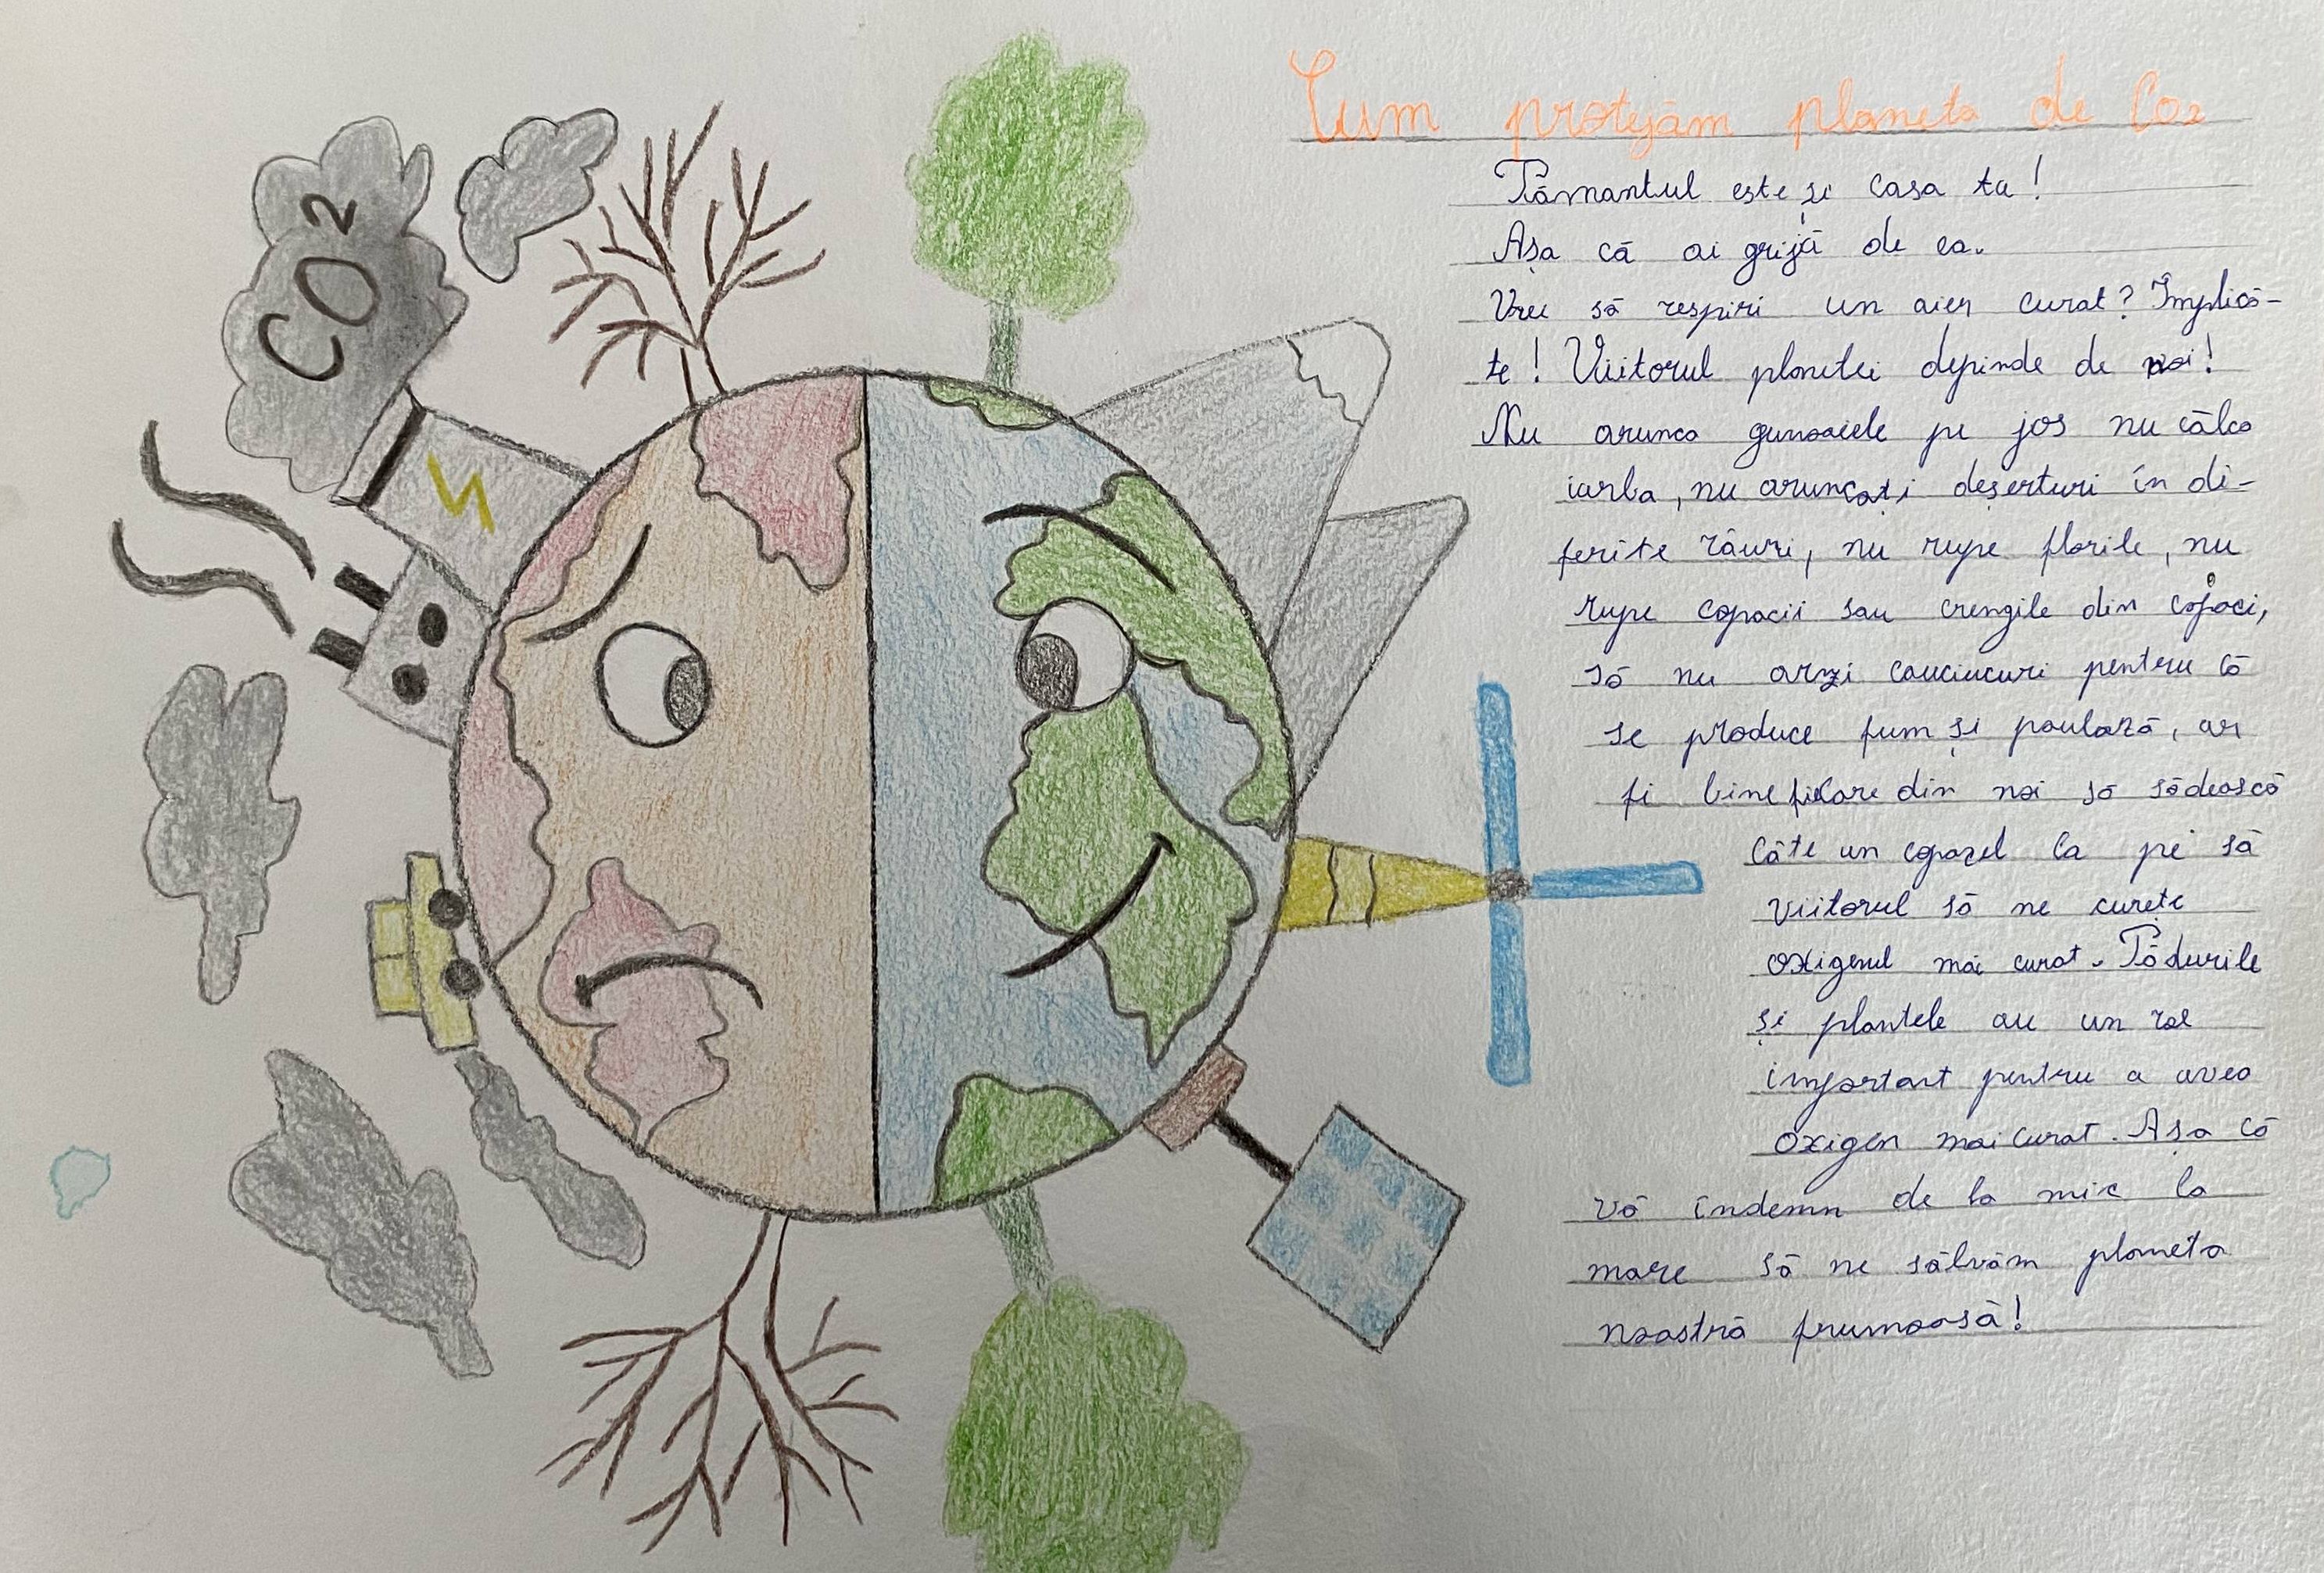 CO2
Cum protejăm planeta de Co2
Pământul este și casa ta!
Așa că ai grijă de ea.
Vrei să respiri un aier curat? Implică-
te! Viitorul planetei depinde de noi!
Nu arunca gunoaiele pe jos nu călca
iarba, nu aruncați deșerturi în di-
ferite râuri, nu rupe florile, nu
rupe copacii sau crengile din copaci,
să nu arzi cauciucuri pentru că
se produce fum și poulază, ar
fi bine fiecare din noi să sădească
câte un copăcel ca pe să
viitorul să ne curețe
oxigenul mai curat. Pădurile
și plantele au un rol
important pentru a avea
oxigen mai curat. Așa că
vă îndemn de la mic la
mare să ne sălvăm planeta
noastră frumoasă!